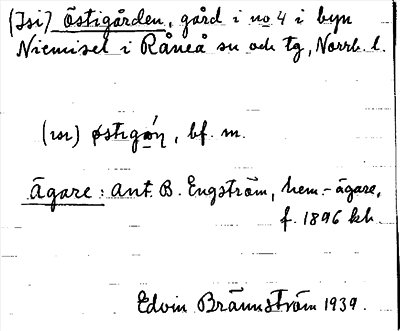 (Isi) Östigården, gård i no 4 i byn
Niemisel i Råneå sn och tg, Norrb. l.
(ısı) østıgɷ́η, bf. m.
Ägare: Ant. B. Engström, hem.-ägare,
f. 1896 kh.
Edvin Brännström 1939.